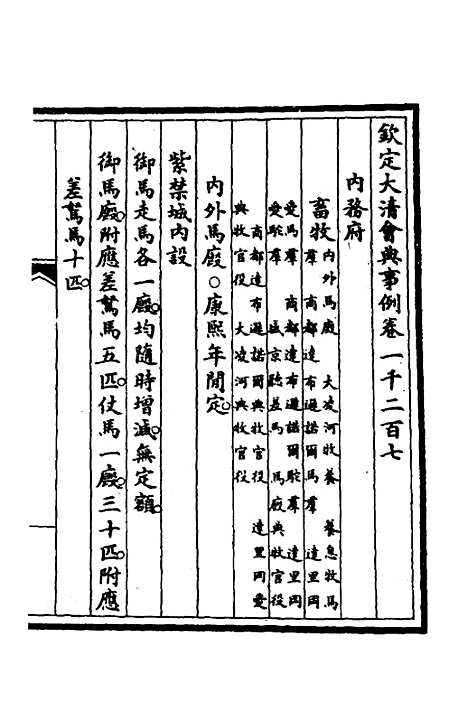 欽定大清會典事例卷一千二百七
內務府
畜牧內外馬廄 大凌河牧養 養息牧馬
羣 商都達布遜諾爾馬羣 達里岡
愛馬羣 商都達布遜諾爾駝羣 達里岡
愛駝羣 盛京騐差馬 馬廄典牧官役
商都達布遜諾爾典牧官役 達里岡愛
典牧官役 大凌河典牧官役
內外馬廄○康熙年閒定
紫禁城內設
御馬走馬各一廄均隨時增減無定額
御馬廄附應差駑馬五匹仗馬一廄三十匹附應
差駑馬十匹